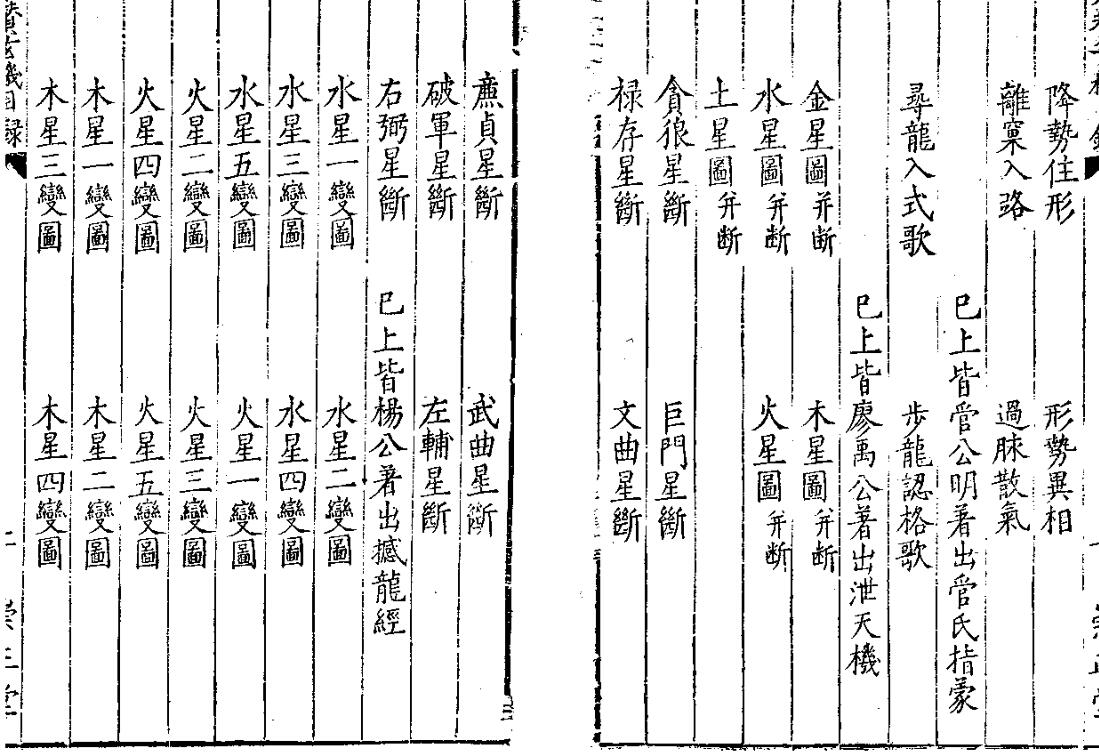 降勢住形　形勢異相
離窠入路　過脉散氣
巳上皆管公明著出管氏指蒙
尋龍入式歌　步龍認格歌
巳上皆廖禹公著出泄天機
金星圖并断　木星圖并断
水星圖并断　火星圖并断
土星圖并断
貪狼星斷　巨門星斷
禄存星斷　文曲星斷
廉貞星斷　武曲星斷
破軍星斷　左輔星斷
右弼星斷
巳上皆楊公著出撼龍經
水星一變圖　水星二變圖
水星三變圖　水星四變圖
水星五變圖　火星一變圖
火星二變圖　火星三變圖
火星四變圖　火星五變圖
木星一變圖　木星二變圖
木星三變圖　木星四變圖